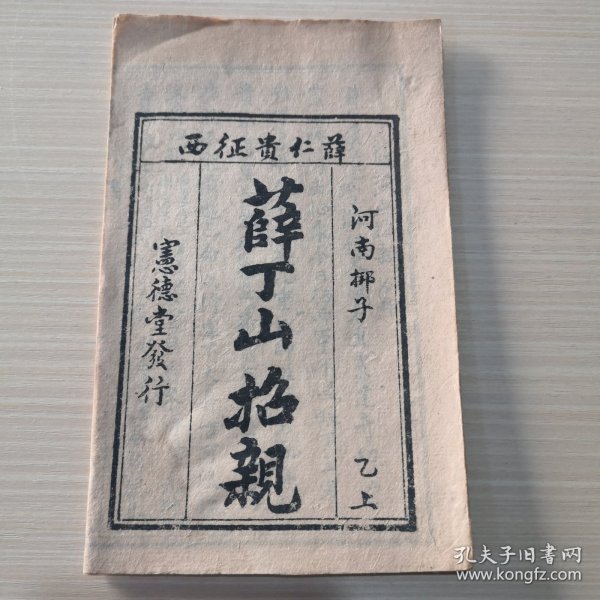 薛仁貴征西
河南梆子
乙上
薛丁山招親
憲德堂發行
孔夫子旧书网
www.kongfz.com